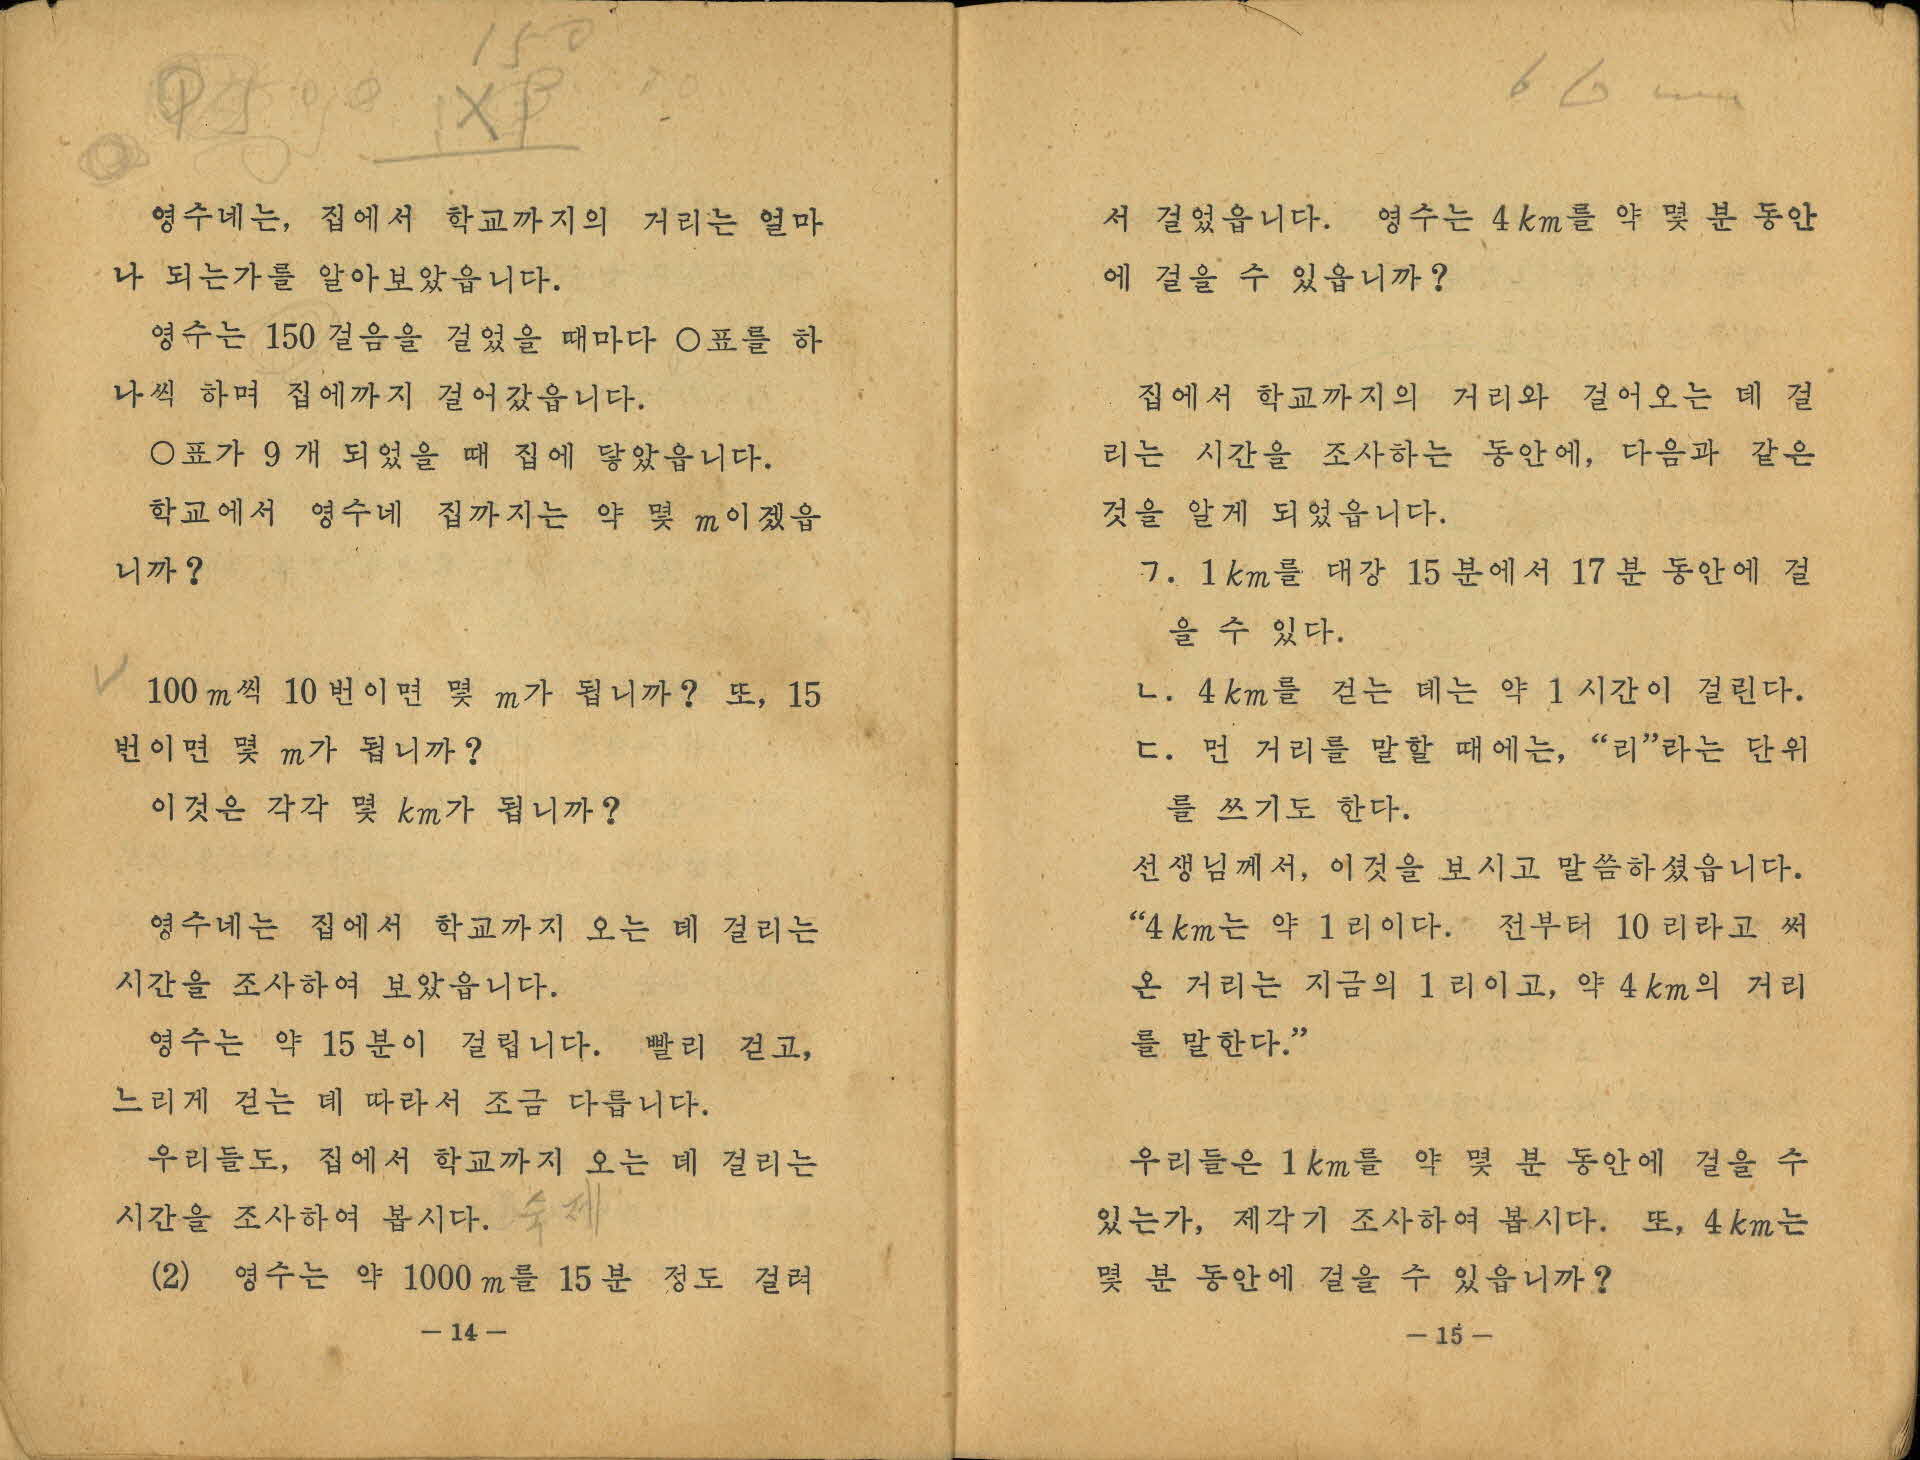 150
영수네는, 집에서 학교까지의 거리는 얼마
나 되는가를 알아보았읍니다.
영수는 150 걸음을 걸었을 때마다 ○표를 하
나씩 하며 집에까지 걸어갔읍니다.
○표가 9 개 되었을 때 집에 닿았읍니다.
학교에서 영수네 집까지는 약 몇 m이겠읍
니까?
100 m씩 10 번이면 몇 m가 됩니까? 또, 15
번이면 몇 m가 됩니까?
이것은 각각 몇 km가 됩니까?
영수네는 집에서 학교까지 오는 데 걸리는
시간을 조사하여 보았읍니다.
영수는 약 15 분이 걸립니다. 빨리 걷고,
느리게 걷는 데 따라서 조금 다릅니다.
우리들도, 집에서 학교까지 오는 데 걸리는
시간을 조사하여 봅시다. 숙제
(2) 영수는 약 1000 m를 15 분 정도 걸려
— 14 —
서 걸었읍니다. 영수는 4 km를 약 몇 분 동안
에 걸을 수 있읍니까?
집에서 학교까지의 거리와 걸어오는 데 걸
리는 시간을 조사하는 동안에, 다음과 같은
것을 알게 되었읍니다.
ㄱ. 1 km를 대강 15 분에서 17 분 동안에 걸
을 수 있다.
ㄴ. 4 km를 걷는 데는 약 1 시간이 걸린다.
ㄷ. 먼 거리를 말할 때에는, “리”라는 단위
를 쓰기도 한다.
선생님께서, 이것을 보시고 말씀하셨읍니다.
“4 km는 약 1 리이다. 전부터 10 리라고 써
온 거리는 지금의 1 리이고, 약 4 km의 거리
를 말한다.”
우리들은 1 km를 약 몇 분 동안에 걸을 수
있는가, 제각기 조사하여 봅시다. 또, 4 km는
몇 분 동안에 걸을 수 있읍니까?
— 15 —